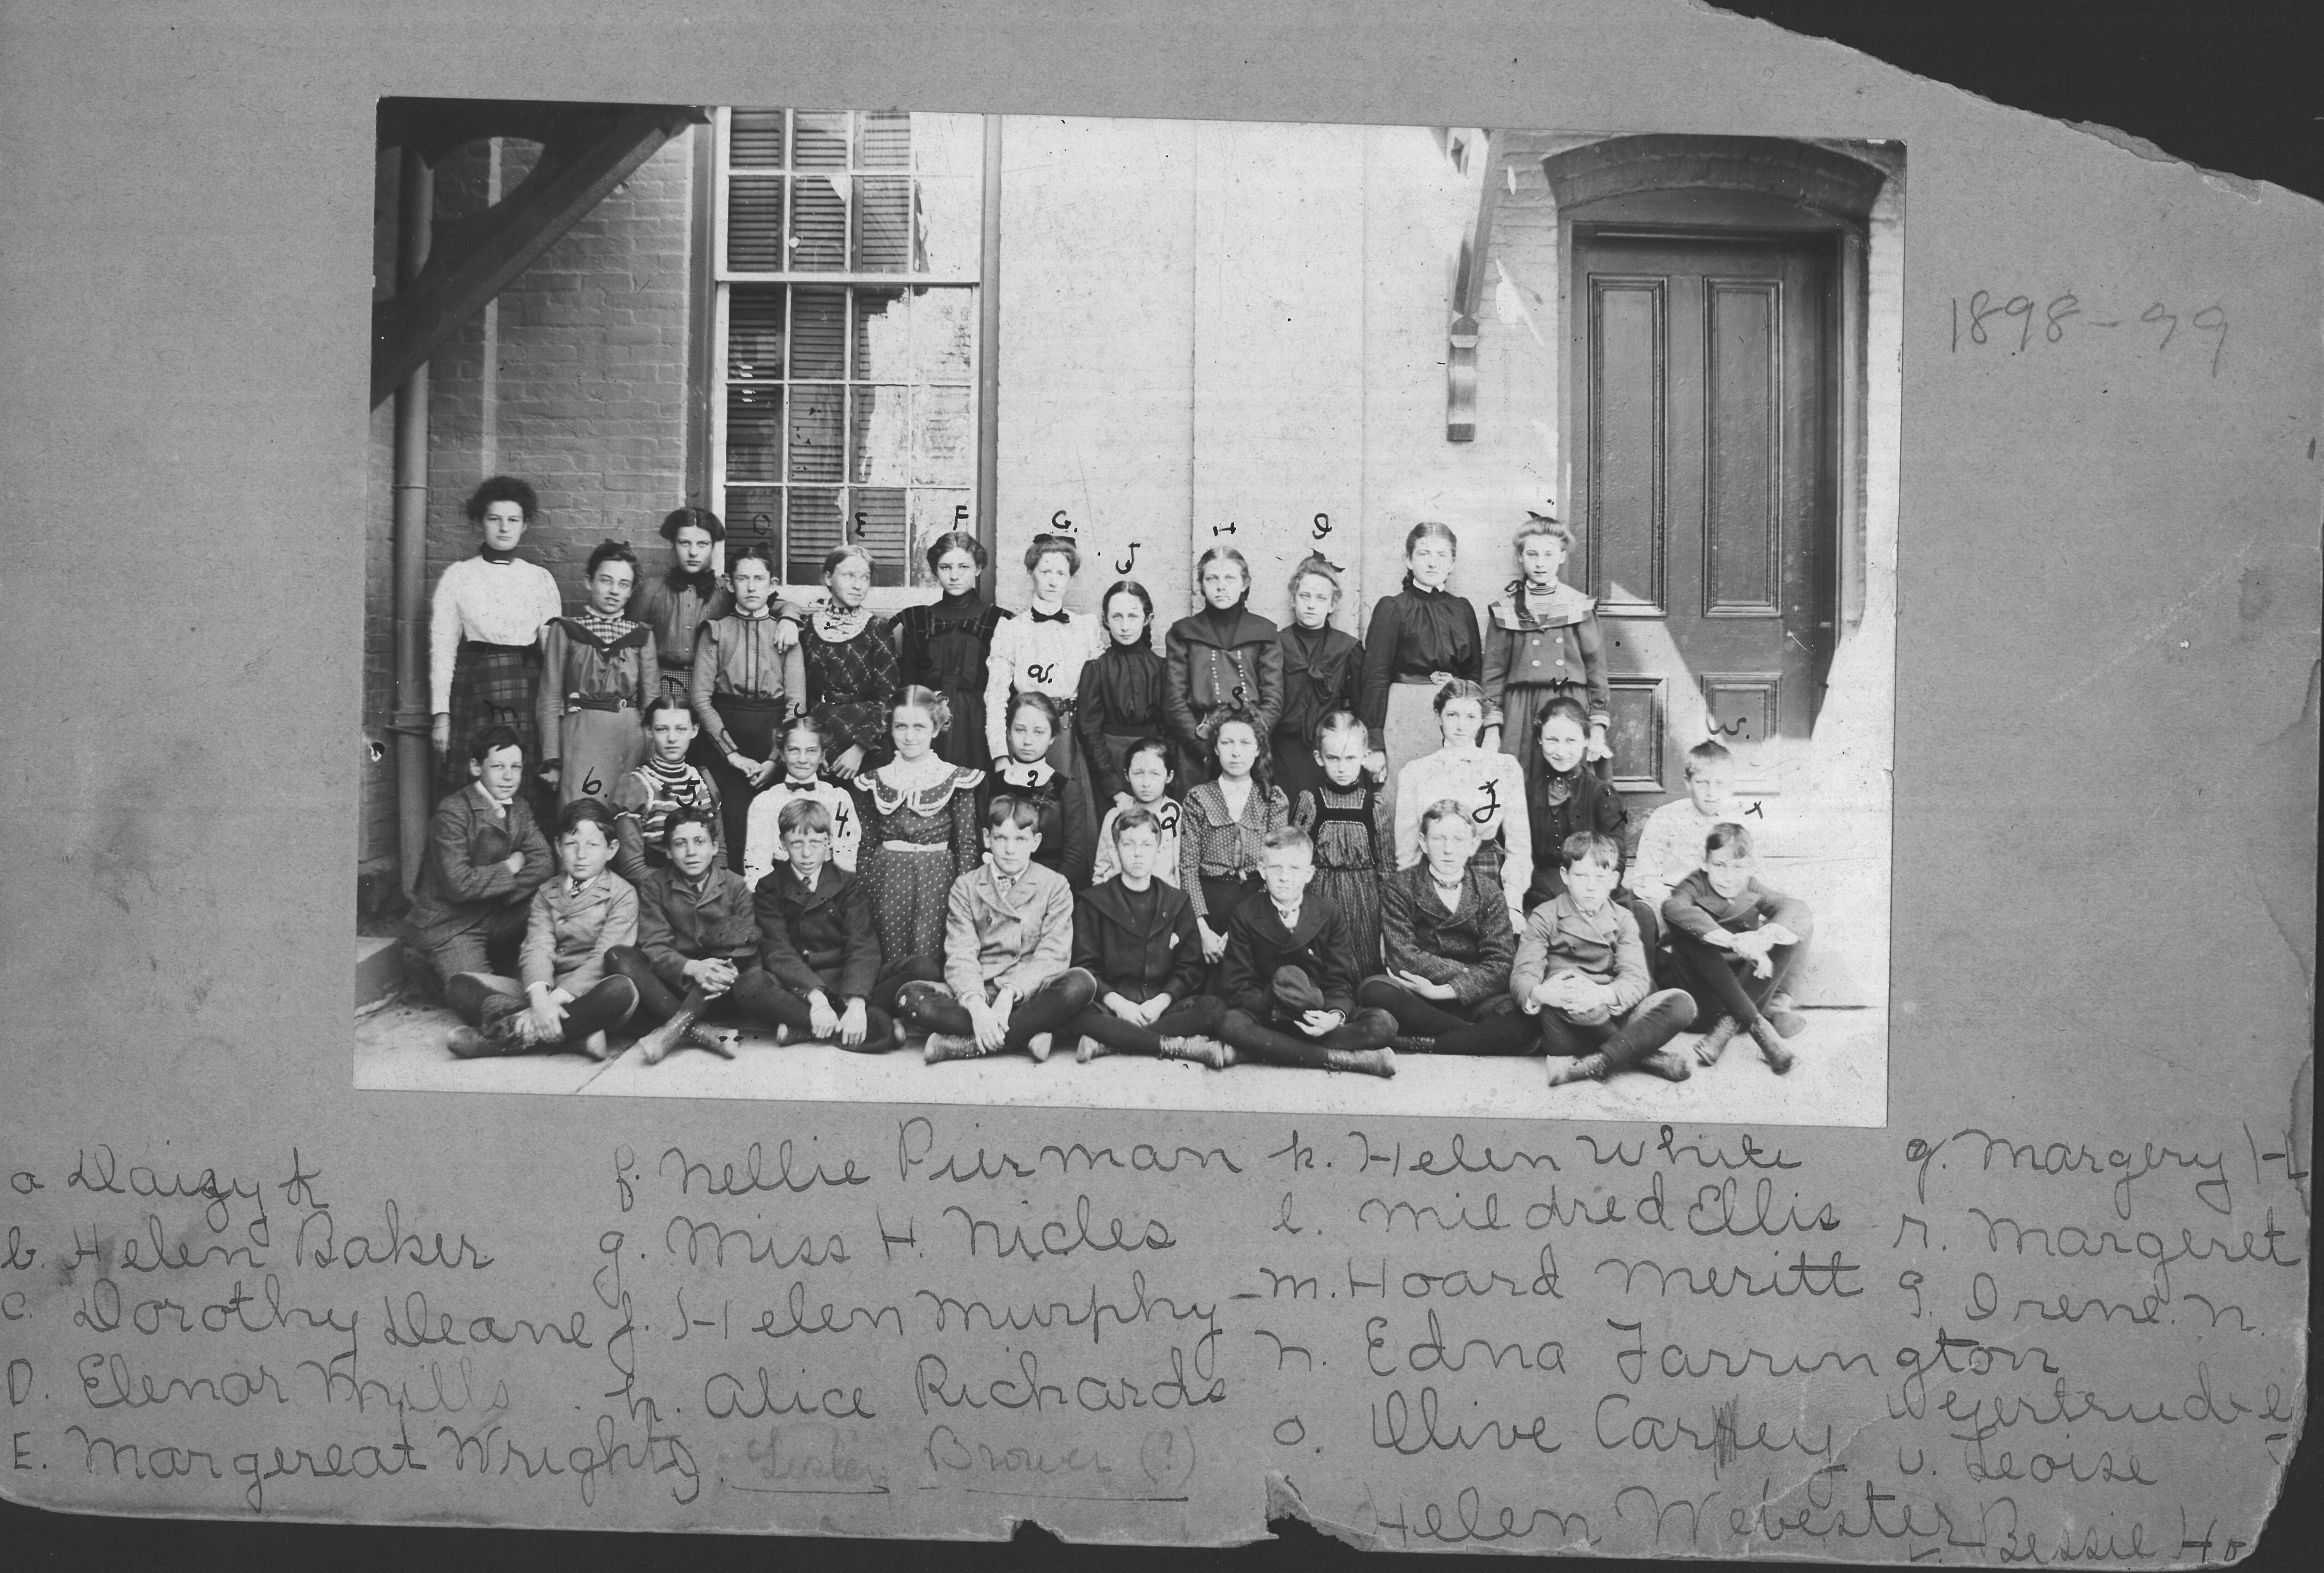 1898-99
D
E
F
G.
J
H
I
m.
r
q.
S
w.
6.
5.
4.
3
2
x
a Daisy K
b. Helen Baker
c. Dorothy Deane
D. Elenor Mills
E. Margereat Wright
f. Nellie Pierman
g. Miss H. Nicles
j. Helen Murphy
h. Alice Richards
Brower (?)
k. Helen White
l. Mildred Ellis
m. Hoard Meritt
n. Edna Farrington
o. Olive Carney
Helen Webester
q. Margery H
r. Margeret
S. Irene. N.
Gertrude
v. Leoise
Bessie Ho